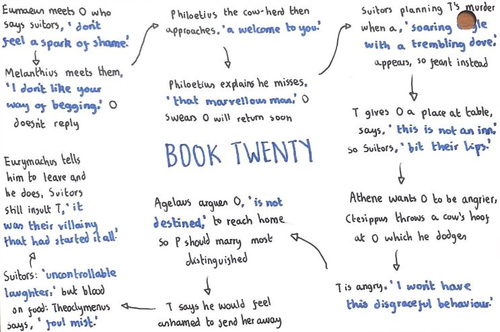 Eumaeus meets O who
says suitors, 'don't
feel a spark of shame.'
Melanthius meets them,
'I don't like your
way of begging.' O
doesn't reply
Philoetius the cow-herd then
approaches, 'a welcome to you.'
Philoetius explains he misses,
'that marvellous man.' O
swears O will return soon
Suitors planning T's murder
when a, 'soaring
with a trembling dove,'
appears, so feast instead
T gives O a place at table,
says, 'this is not an inn,'
so suitors, 'bit their lips.'
BOOK TWENTY
Athene wants O to be angrier,
Ctesippus throws a cow's hoof
at O which he dodges
T is angry, 'I won't have
this disgraceful behaviour.'
Agelaus argues O, 'is not
destined,' to reach home
so P should marry most
distinguished
T says he would feel
ashamed to send her away
Suitors: 'uncontrollable
laughter,' but blood
on food: Theoclymenus
says, 'foul mist.'
Eurymachus tells
him to leave and
he does, Suitors
still insult T, 'it
was their villainy
that had started it all.'